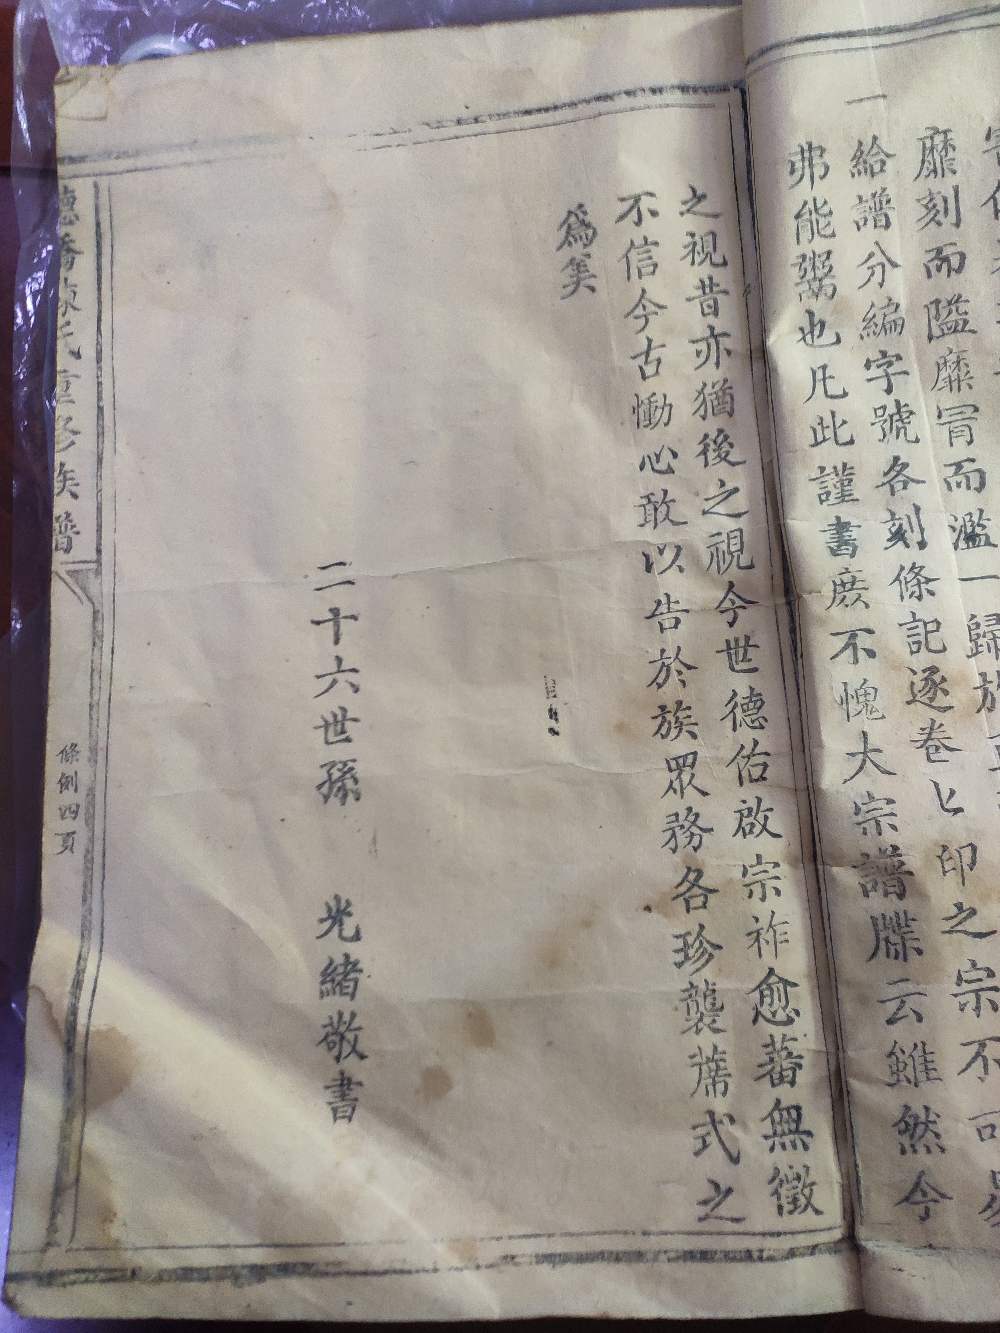 靡刻而隘靡罥而濫一歸於
一給譜分編字號各刻條記逐卷匕印之宗不可
弗能鬻也凡此謹書庶不愧大宗譜牒云雖然今
之視昔亦猶後之視今世德佑啟宗祚愈蕃無徵
不信今古慟心敢以告於族眾務各珍襲蓆式之
為美
二十六世孫 光緒敬書
德 陳氏重修族譜
條例四頁